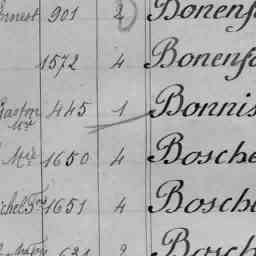 Ernest 901 2 Bonenfa
1572 4 Bonenfa
Gaston 445 1 Bonnis
Mie 1650 4 Bosche
ichel Fois 1651 4 Bosche
621 2 Bosch